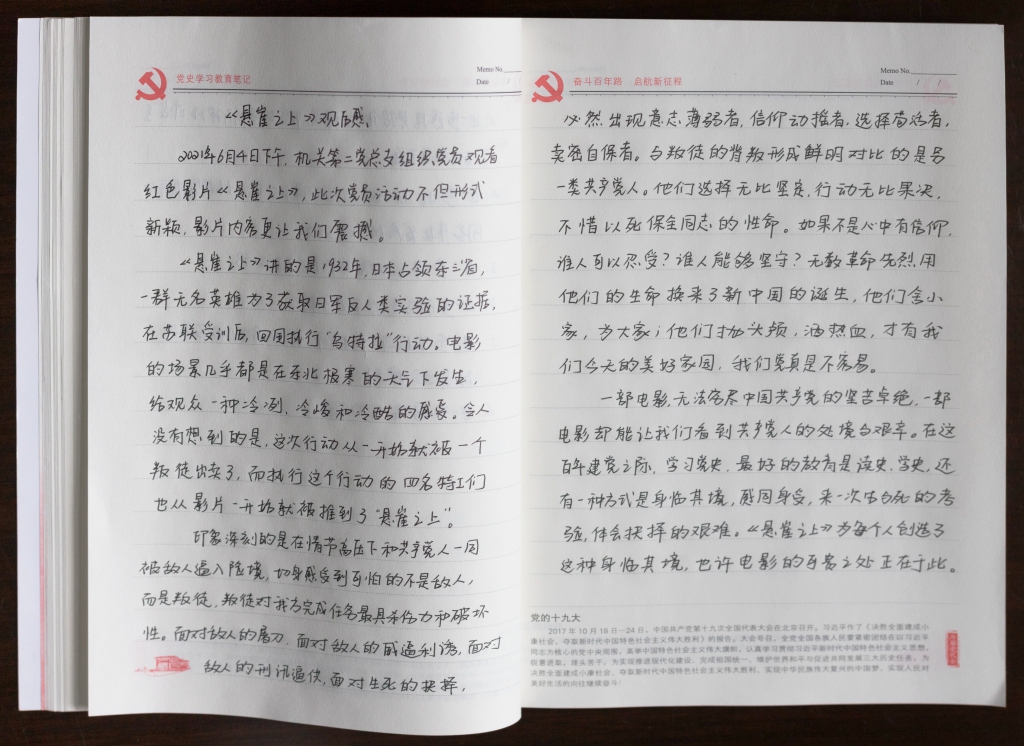 党史学习教育笔记
Memo No.
Date / /
《悬崖之上》观后感
2021年6月4日下午，机关第二党总支组织党员观看
红色影片《悬崖之上》，此次党员活动不但形式
新颖，影片内容更让我们震撼。
《悬崖之上》讲的是1932年，日本占领东三省，
一群无名英雄为了获取日军反人类实验的证据，
在苏联受训后，回国执行“乌特拉”行动。电影
的场景几乎都是在东北极寒的天气下发生，
给观众一种冷冽、冷峻和冷酷的感受。令人
没有想到的是，这次行动从一开始就被一个
叛徒出卖了，而执行这个行动的四名特工们
也从影片一开始就被推到了“悬崖之上”。
印象深刻的是在情节高压下和共产党人一同
被敌人逼入险境，切身感受到可怕的不是敌人，
而是叛徒，叛徒对我方完成任务最具杀伤力和破坏
性。面对敌人的屠刀，面对敌人的威逼利诱，面对
敌人的刑讯逼供，面对生死的抉择，
奋斗百年路 启航新征程
Memo No.
Date / /
必然出现意志薄弱者，信仰动摇者，选择苟活者，
卖密自保者。与叛徒的背叛形成鲜明对比的是另
一类共产党人。他们选择无比坚定，行动无比果决，
不惜以死保全同志的性命。如果不是心中有信仰，
谁人可以忍受？谁人能够坚守？无数革命先烈用
他们的生命换来了新中国的诞生，他们舍小
家，为大家；他们抛头颅，洒热血，才有我
们今天的美好家园，我们党真是不容易。
一部电影，无法客尽中国共产党的坚苦卓绝，一部
电影却能让我们看到共产党人的处境与艰辛。在这
百年建党之际，学习党史，最好的教育是读史，学史，还
有一种方式是身临其境，感同身受，来一次生与死的考
验，体会抉择的艰难。《悬崖之上》为每个人创造了
这种身临其境，也许电影的可贵之处正在于此。
党的十九大
2017年10月18日—24日，中国共产党第十九次全国代表大会在北京召开。习近平作了《决胜全面建成小
康社会，夺取新时代中国特色社会主义伟大胜利》的报告。大会号召，全党全国各族人民要紧密团结在以习近平
同志为核心的党中央周围，高举中国特色社会主义伟大旗帜，认真学习贯彻习近平新时代中国特色社会主义思想，
锐意进取，埋头苦干，为实现推进现代化建设、完成祖国统一、维护世界和平与促进共同发展三大历史任务，为
决胜全面建成小康社会、夺取新时代中国特色社会主义伟大胜利、实现中华民族伟大复兴的中国梦、实现人民对
美好生活的向往继续奋斗！